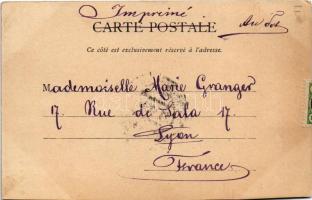 Imprimé
CARTE POSTALE
Ce côté est exclusivement réservé à l'adresse.
Mademoiselle Marie Granger
17. Rue de Sala 17.
Lyon
France